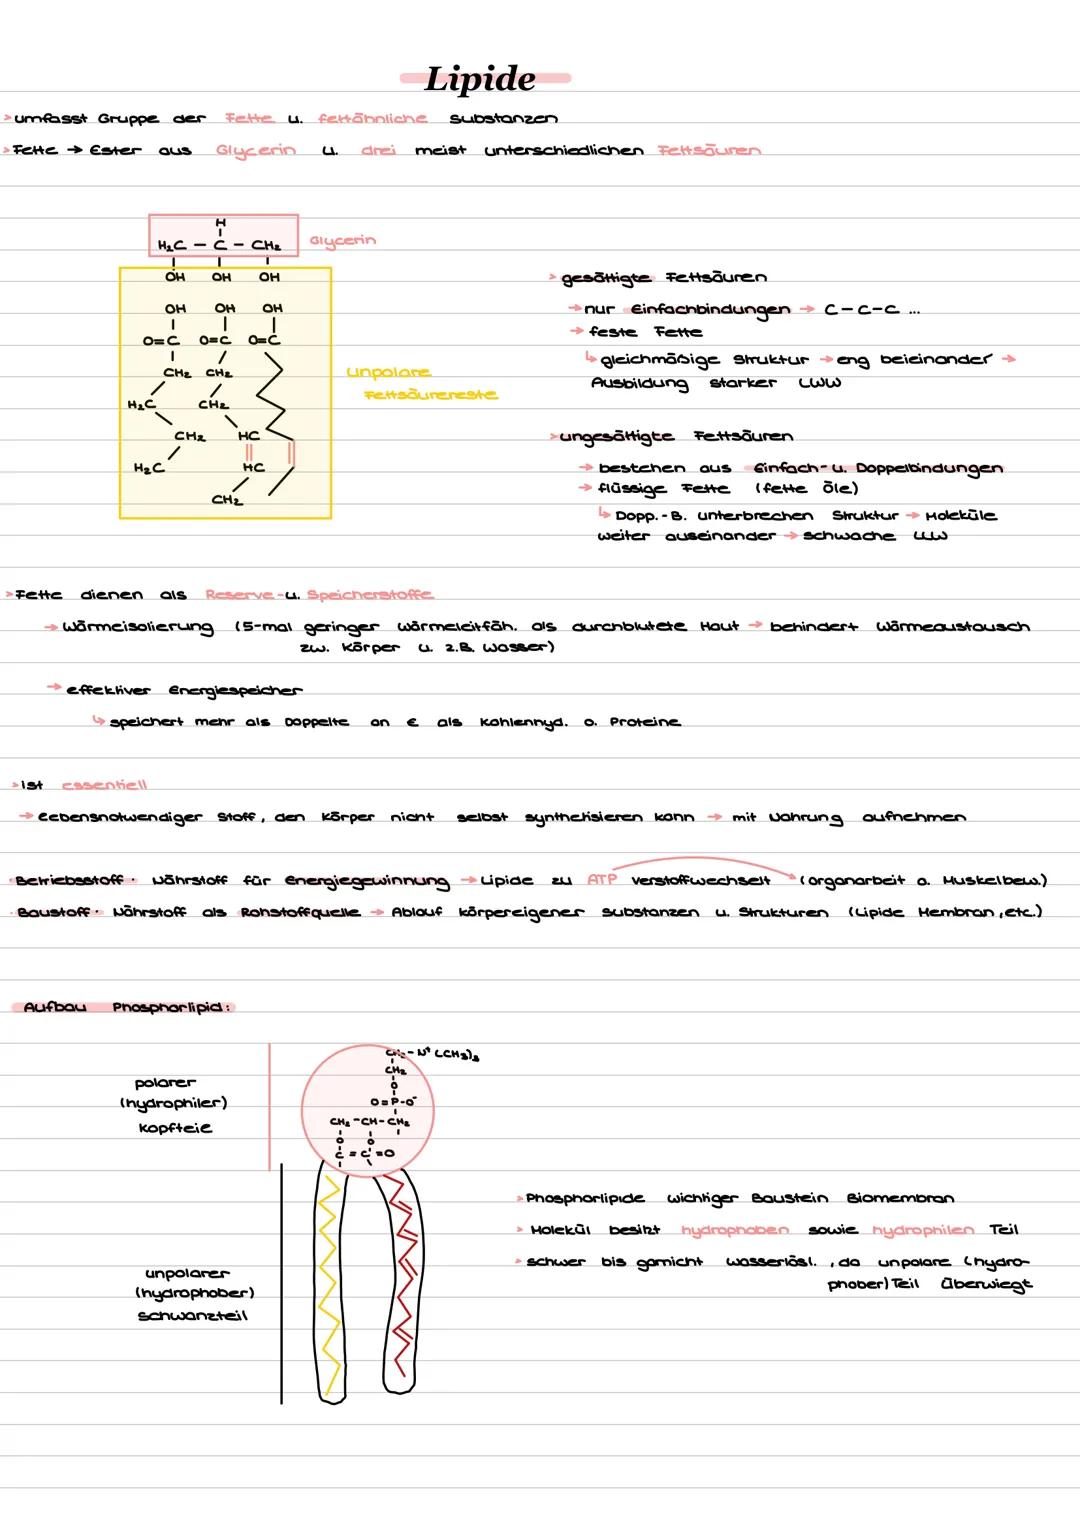 Lipide
> umfasst Gruppe der Fette u. fettähnliche Substanzen
> Fette → Ester aus Glycerin u. drei meist unterschiedlichen Fettsäuren
H
H₂C - C - CH₂
Glycerin
OH OH OH
OH OH OH
O=C O=C O=C
CH₂ CH₂
H₂C CH₂
CH₂ HC
H₂C HC
CH₂
unpolare
Fettsäurereste
> gesättigte Fettsäuren
→ nur Einfachbindungen → C-C-C ...
→ feste Fette
↳ gleichmäßige Struktur → eng beieinander →
Ausbildung starker LWW
> ungesättigte Fettsäuren
→ bestehen aus Einfach- u. Doppelbindungen
→ flüssige Fette (fette Öle)
↳ Dopp.-B. unterbrechen Struktur → Moleküle
weiter auseinander → schwache LLW
> Fette dienen als Reserve- u. Speicherstoffe
→ Wärmeisolierung (5-mal geringer Wärmeleitfäh. als durchblutete Haut → behindert Wärmeaustausch
zw. Körper u. z.B. Wasser)
→ effektiver Energiespeicher
↳ speichert mehr als Doppelte an E als Kohlenhyd. o. Proteine
> ist essentiell
→ lebensnotwendiger Stoff, den Körper nicht selbst synthetisieren kann → mit Nahrung aufnehmen
Betriebsstoff: Nährstoff für Energiegewinnung → Lipide zu ATP verstoffwechselt (Organarbeit o. Muskelbew.)
Baustoff: Nährstoff als Rohstoffquelle → Ablauf körpereigener Substanzen u. Strukturen (Lipide Membran, etc.)
Aufbau Phosphorlipid:
CH₂-N⁺(CH₃)₃
CH₂
O
O=P-O⁻
CH₂-CH-CH₂
O O
C=C=O
polarer
(hydrophiler)
Kopfteie
unpolarer
(hydrophober)
Schwanzteil
> Phosphorlipide wichtiger Baustein Biomembran
> Molekül besitzt hydrophoben sowie hydrophilen Teil
> schwer bis garnicht wasserlösl., da unpolare (hydro-
phober) Teil überwiegt